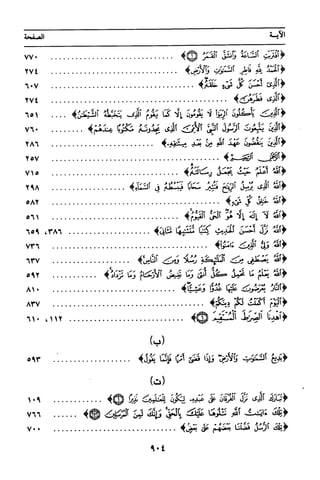 الآيـة الصفحة
﴿اقْتَرَبَتِ السَّاعَةُ وَانْشَقَّ الْقَمَرُ ①﴾ ........ ٧٧٠
﴿الْحَمْدُ لِلَّهِ فَاطِرِ السَّمَوَتِ وَالْأَرْضِ﴾ ........ ٢٧٤
﴿الَّذِي أَحْسَنَ كُلَّ شَيْءٍ خَلَقَهُ﴾ ........ ٦٠٧
﴿الَّذِي فَطَرَهُنَّ﴾ ........ ٢٧٤
﴿الَّذِينَ يَأْكُلُونَ الرِّبَوا لَا يَقُومُونَ إِلَّا كَمَا يَقُومُ الَّذِي يَتَخَبَّطُهُ الشَّيْطَنُ﴾ .... ٦٥١
﴿الَّذِينَ يَتَّبِعُونَ الرَّسُولَ النَّبِيَّ الْأُمِّيَّ الَّذِي يَجِدُونَهُ مَكْتُوبًا عِندَهُمْ﴾ ........ ٧٦٠
﴿الَّذِينَ يَنقُضُونَ عَهْدَ اللَّهِ مِنْ بَعْدِ مِيثَقِهِ﴾ ........ ٢٨٦
﴿الرَّحْمَنِ الرَّحِيمِ﴾ ........ ٢٥٧
﴿اللَّهُ أَعْلَمُ حَيْثُ يَجْعَلُ رِسَالَتَهُ﴾ ........ ٧١٥
﴿اللَّهُ الَّذِي يُرْسِلُ الرِّيَحَ فَتُثِيرُ سَحَابًا فَيَبْسُطُهُ فِي السَّمَاءِ﴾ ........ ٢٩٨
﴿اللَّهُ خَلِقُ كُلِّ شَيْءٍ﴾ ........ ٥٨٢
﴿اللَّهُ لَا إِلَهَ إِلَّا هُوَ الْحَيُّ الْقَيُّومُ﴾ ........ ٥٦١
﴿اللَّهُ نَزَّلَ أَحْسَنَ الْحَدِيثِ كِتَبًا مُتَشَبِهًا مَثَانِيَ﴾ ........ ٣٨٦، ٦٥٩
﴿اللَّهُ وَلِيُّ الَّذِينَ ءَامَنُوا﴾ ........ ٧٣٦
﴿اللَّهُ يَصْطَفِي مِنَ الْمَلَئِكَةِ رُسُلًا وَمِنَ النَّاسِ﴾ ........ ٦٣٧
﴿اللَّهُ يَعْلَمُ مَا تَحْمِلُ كُلُّ أُنثَى وَمَا تَغِيضُ الْأَرْحَامُ وَمَا تَزْدَادُ﴾ ........ ٥٩٢
﴿النَّارُ يُعْرَضُونَ عَلَيْهَا غُدُوًّا وَعَشِيًّا﴾ ........ ٨١٠
﴿الْيَوْمَ أَكْمَلْتُ لَكُمْ دِينَكُمْ﴾ ........ ٨٣٧
﴿اهْدِنَا الصِّرَطَ الْمُسْتَقِيمَ ⑥﴾ ........ ١١٢، ٦١٠
(ب)
﴿بَدِيعُ السَّمَوَتِ وَالْأَرْضِ وَإِذَا قَضَى أَمْرًا فَإِنَّمَا يَقُولُ﴾ ........ ٥٩٣
(ت)
﴿تَبَارَكَ الَّذِي نَزَّلَ الْفُرْقَانَ عَلَى عَبْدِهِ لِيَكُونَ لِلْعَلَمِينَ نَذِيرًا ①﴾ ........ ١٠٩
﴿تِلْكَ ءَايَتُ اللَّهِ نَتْلُوهَا عَلَيْكَ بِالْحَقِّ وَإِنَّكَ لَمِنَ الْمُرْسَلِينَ﴾ ........ ٧٦٦
﴿تِلْكَ الرُّسُلُ فَضَّلْنَا بَعْضَهُمْ عَلَى بَعْضٍ﴾ ........ ٧٠٠
٩٠٤